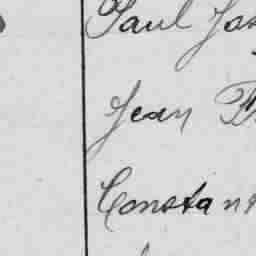 Paul Jos
Jean
Constant